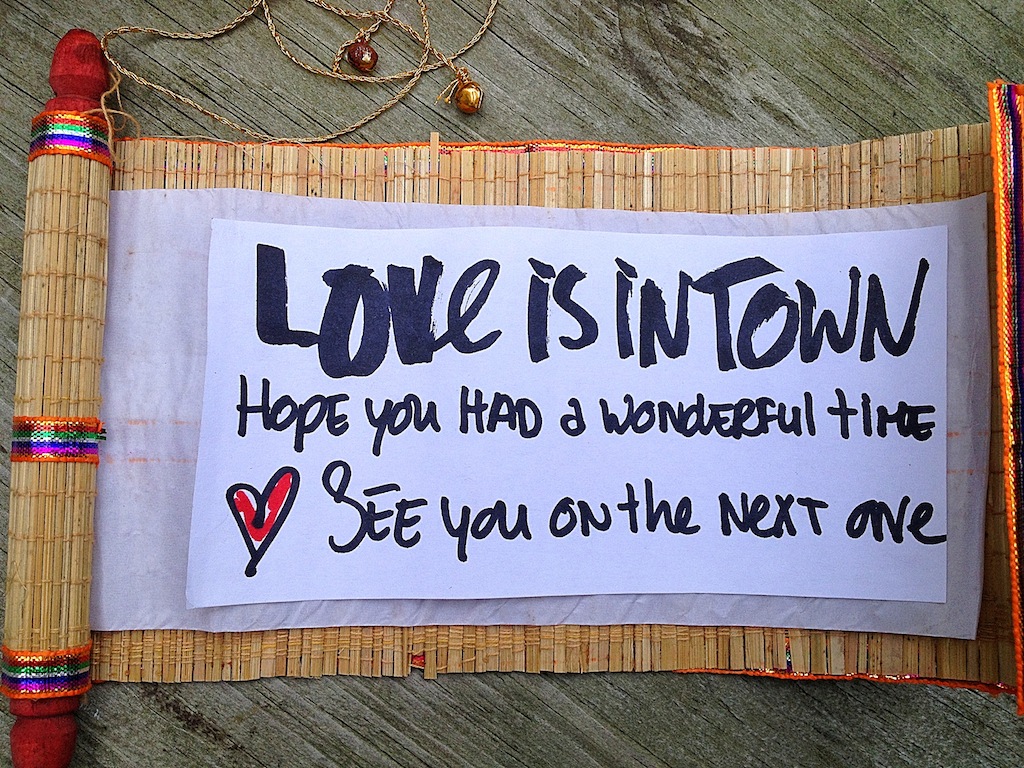 LOVe iS iN TOWN
HOPE you HAD a WONDERFul tiME
SEE you ON the NEXT ONe